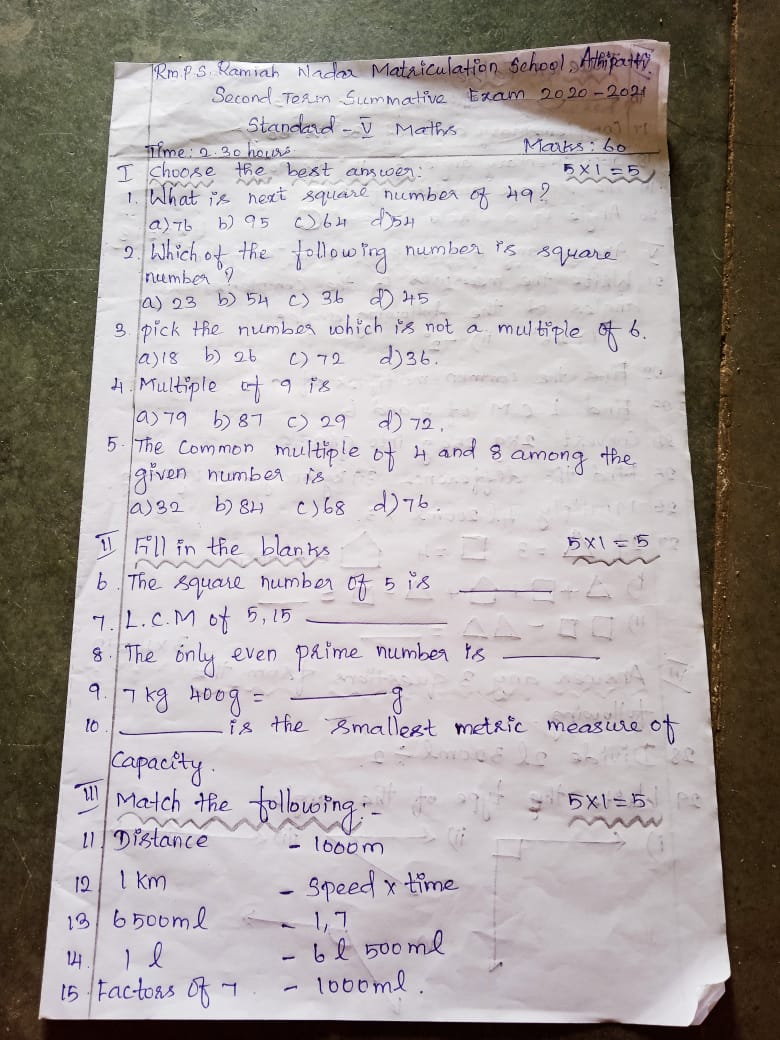 Rm.P.S. Ramiah Nadar Matriculation School, Athipatti.
Second Term Summative Exam 2020-2021
Standard - V Maths
Time: 2.30 hours Marks: 60
I Choose the best answer: 5x1=5
1. What is next square number of 49?
a) 76 b) 95 c) 64 d) 54
2. Which of the following number is square
number?
a) 23 b) 54 c) 36 d) 45
3. pick the number which is not a multiple of 6.
a) 18 b) 26 c) 72 d) 36.
4. Multiple of 9 is
a) 79 b) 87 c) 29 d) 72.
5. The Common multiple of 4 and 8 among the
given number is
a) 32 b) 84 c) 68 d) 76.
II Fill in the blanks 5x1=5
6. The square number of 5 is ______
7. L.C.M of 5,15 ______
8. The only even prime number is ______
9. 7 kg 400g = ______ g
10. ______ is the smallest metric measure of
Capacity.
III Match the following:- 5x1=5
11. Distance - 1000m
12. 1 km - Speed x time
13. 6500ml - 1,7
14. 1 l - 6 l 500 ml
15. Factors of 7 - 1000ml.